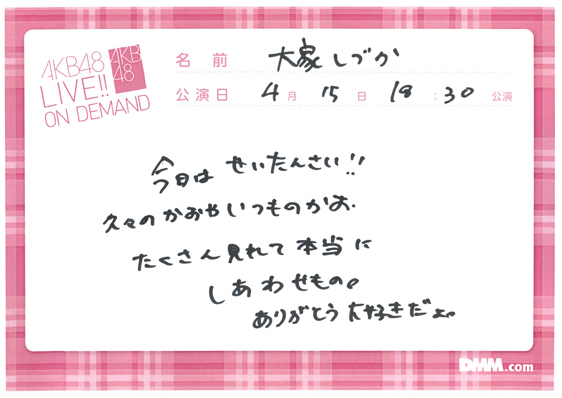 AKB48
LIVE!!
ON DEMAND
AKB
48
名前 大家しづか
公演日 4月 15日 18:30 公演
今日は せいたんさい!!
久々のかおやいつものかお、
たくさん見れて本当に
しあわせもの。
ありがとう大好きだよ。
DMM.com